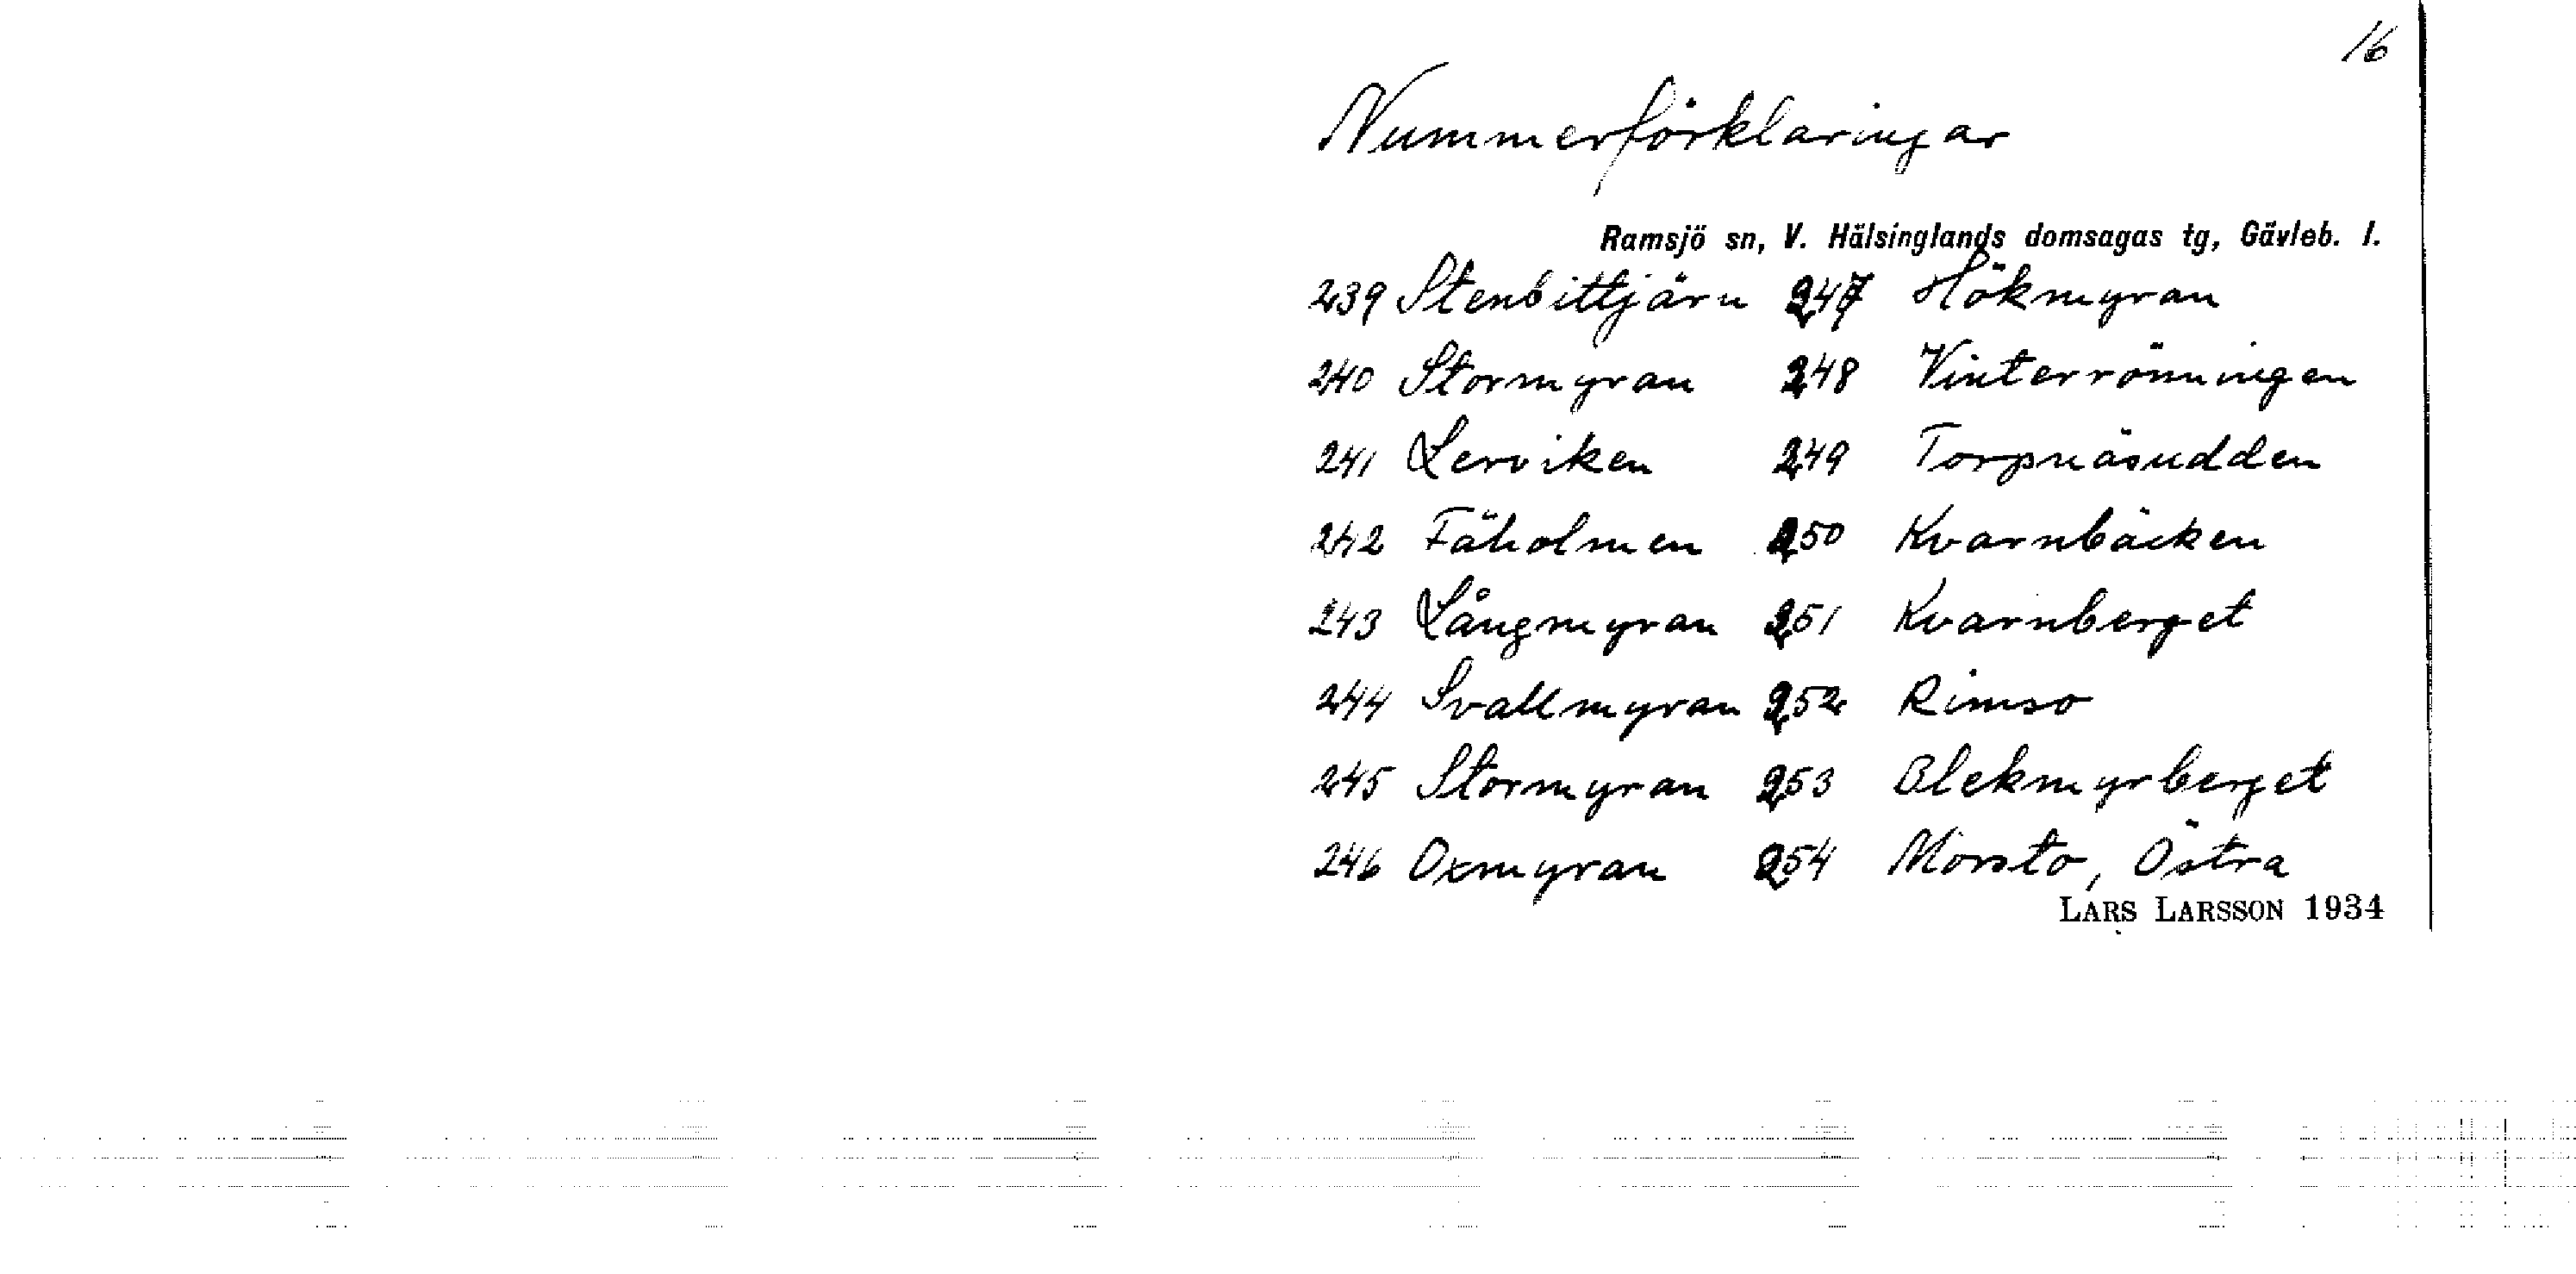 16
Nummerförklaringar
Ramsjö sn, V. Hälsinglands domsagas tg, Gävleb. l.
239 Stenbittjärn 247 Hökmyran
240 Stormyran 248 Vinterrönningen
241 Lerviken 249 Torpnäsudden
242 Fäholmen 250 Kvarnbäcken
243 Långmyran 251 Kvarnberget
244 Svallmyran 252 Rimso
245 Stormyran 253 Blekmyrberget
246 Oxmyran 254 Morsto, Östra
LARS LARSSON 1934